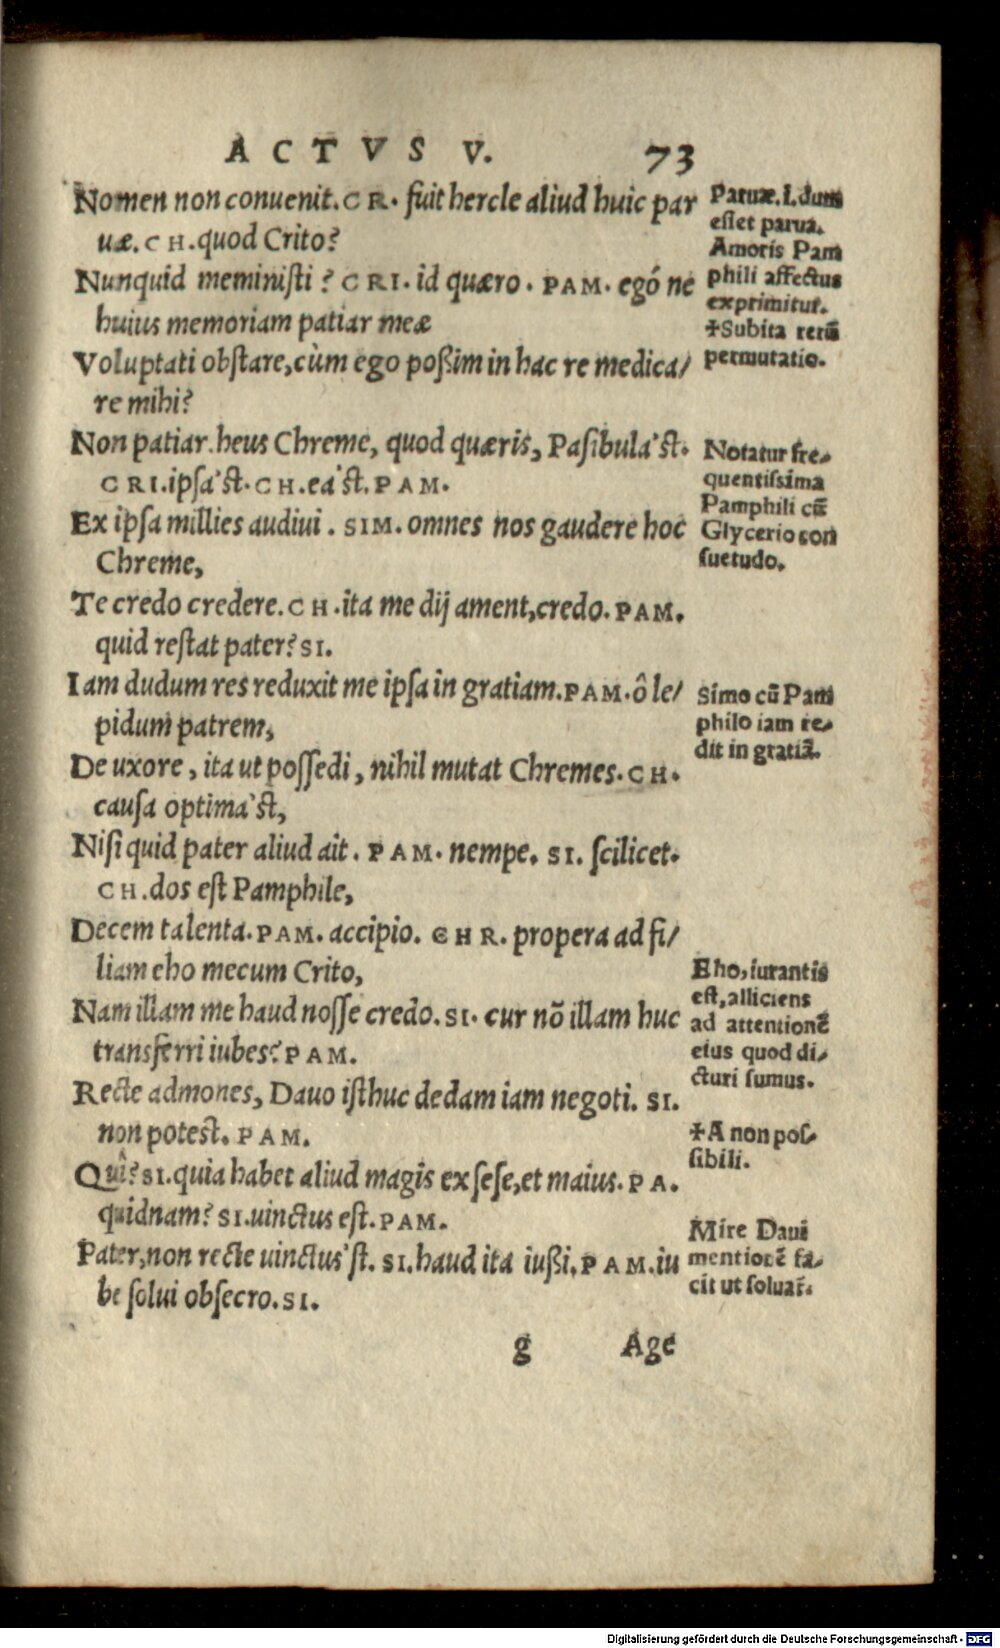 ACTVS V. 73
Nomen non conuenit. CR. fuit hercle aliud huic par
uæ. CH. quod Crito?
Nunquid meministi? CRI. id quæro. PAM. egó ne
huius memoriam patiar meæ
Voluptati obstare, cùm ego poßim in hac re medica/
re mihi?
Non patiar. heus Chreme, quod quæris, Pasibula'st.
CRI. ipsa'st. CH. ea'st. PAM.
Ex ipsa millies audiui. SIM. omnes nos gaudere hoc
Chreme,
Te credo credere. CH. ita me dij ament, credo. PAM.
quid restat pater? SI.
Iam dudum res reduxit me ipsa in gratiam. PAM. ô le/
pidum patrem,
De uxore, ita ut possedi, nihil mutat Chremes. CH.
causa optima'st,
Nisi quid pater aliud ait. PAM. nempe. SI. scilicet.
CH. dos est Pamphile,
Decem talenta. PAM. accipio. CHR. propera ad fi/
liam eho mecum Crito,
Nam illam me haud nosse credo. SI. cur nō illam huc
transferri iubes? PAM.
Recte admones, Dauo isthuc dedam iam negoti. SI.
non potest. PAM.
Quî? SI. quia habet aliud magis ex sese, et maius. PA.
quidnam? SI. uinctus est. PAM.
Pater, non recte uinctus'st. SI. haud ita iußi. PAM. iu
be solui obsecro. SI.
g Age
Paruæ. I. dum
esset parua.
Amoris Pam
phili affectus
exprimitur.
✝Subita rerū
permutatio.
Notatur fre-
quentissima
Pamphili cū
Glycerio con
suetudo.
Simo cū Pam
philo iam re-
dit in gratiā.
Eho, iurantis
est, alliciens
ad attentionē
eius quod di-
cturi sumus.
✝A non pos-
sibili.
Mire Daui
mentionē fa-
cit ut soluat̄.
Digitalisierung gefördert durch die Deutsche Forschungsgemeinschaft - DFG